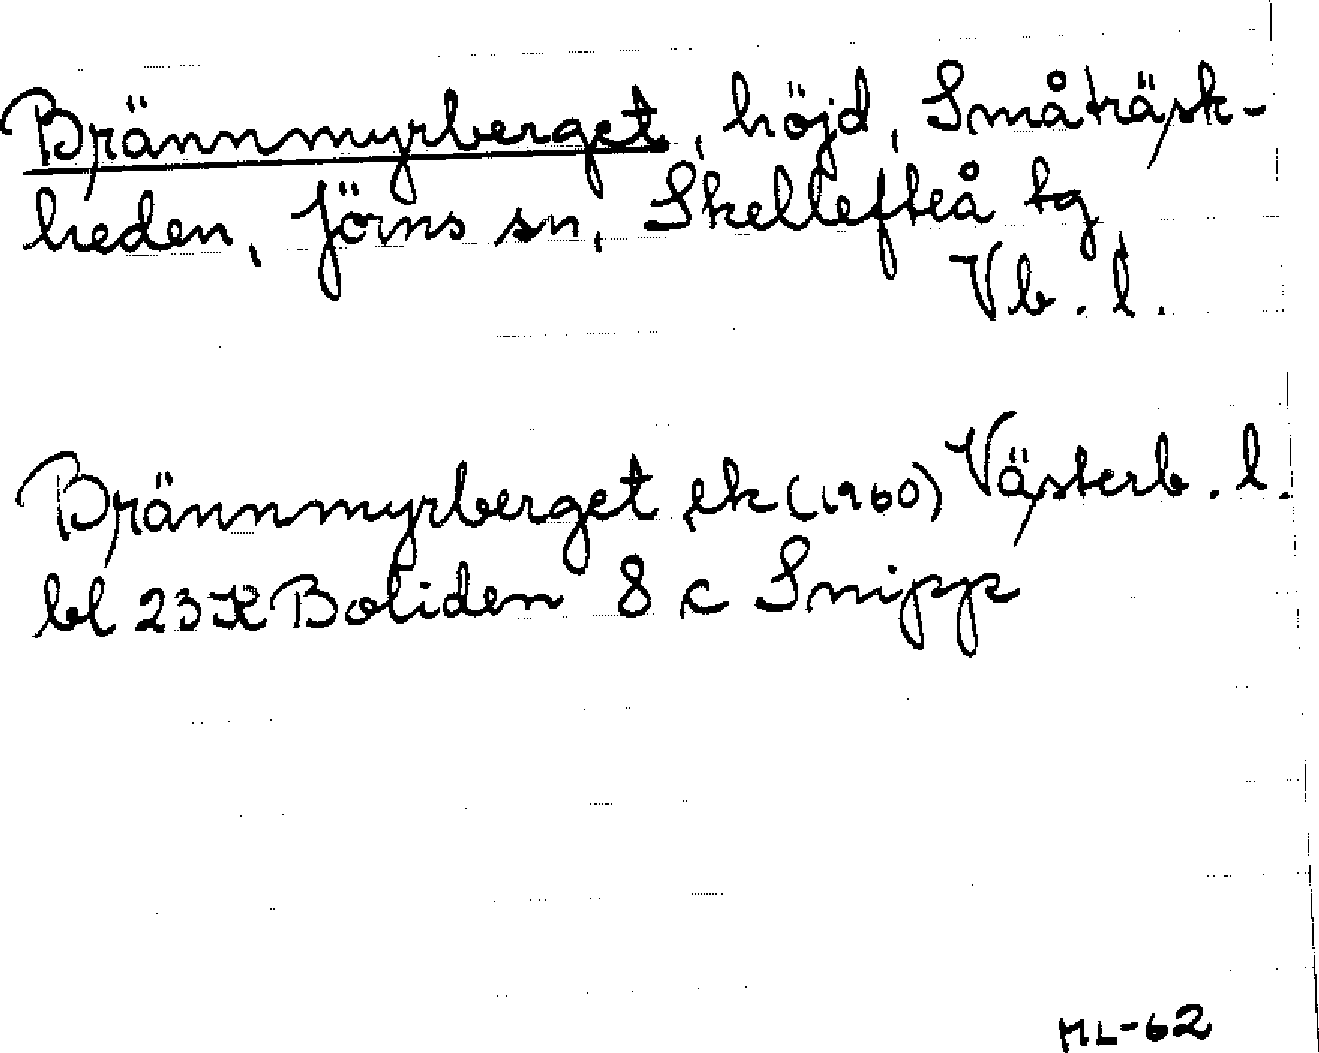 Brännmyrberget, höjd, Småträsk-
heden, Jörns sn, Skellefteå tg
Vb. l.
Brännmyrberget ek (1960) Västerb. l.
bl 23 K Boliden 8 c Snipp
ML-62